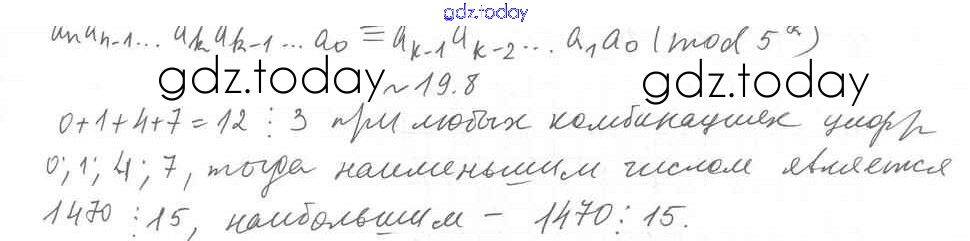 gdz.today
aₙaₙ₋₁... aₖaₖ₋₁... a₀ ≡ aₖ₋₁aₖ₋₂... a₁a₀ (mod 5ᵃ)
gdz.today gdz.today
~ 19.8
0+1+4+7=12 ⋮ 3 при любых комбинациях цифр
0; 1; 4; 7, тогда наименьшим числом является
1470 ⋮ 15, наибольшим – 1470 ⋮ 15.